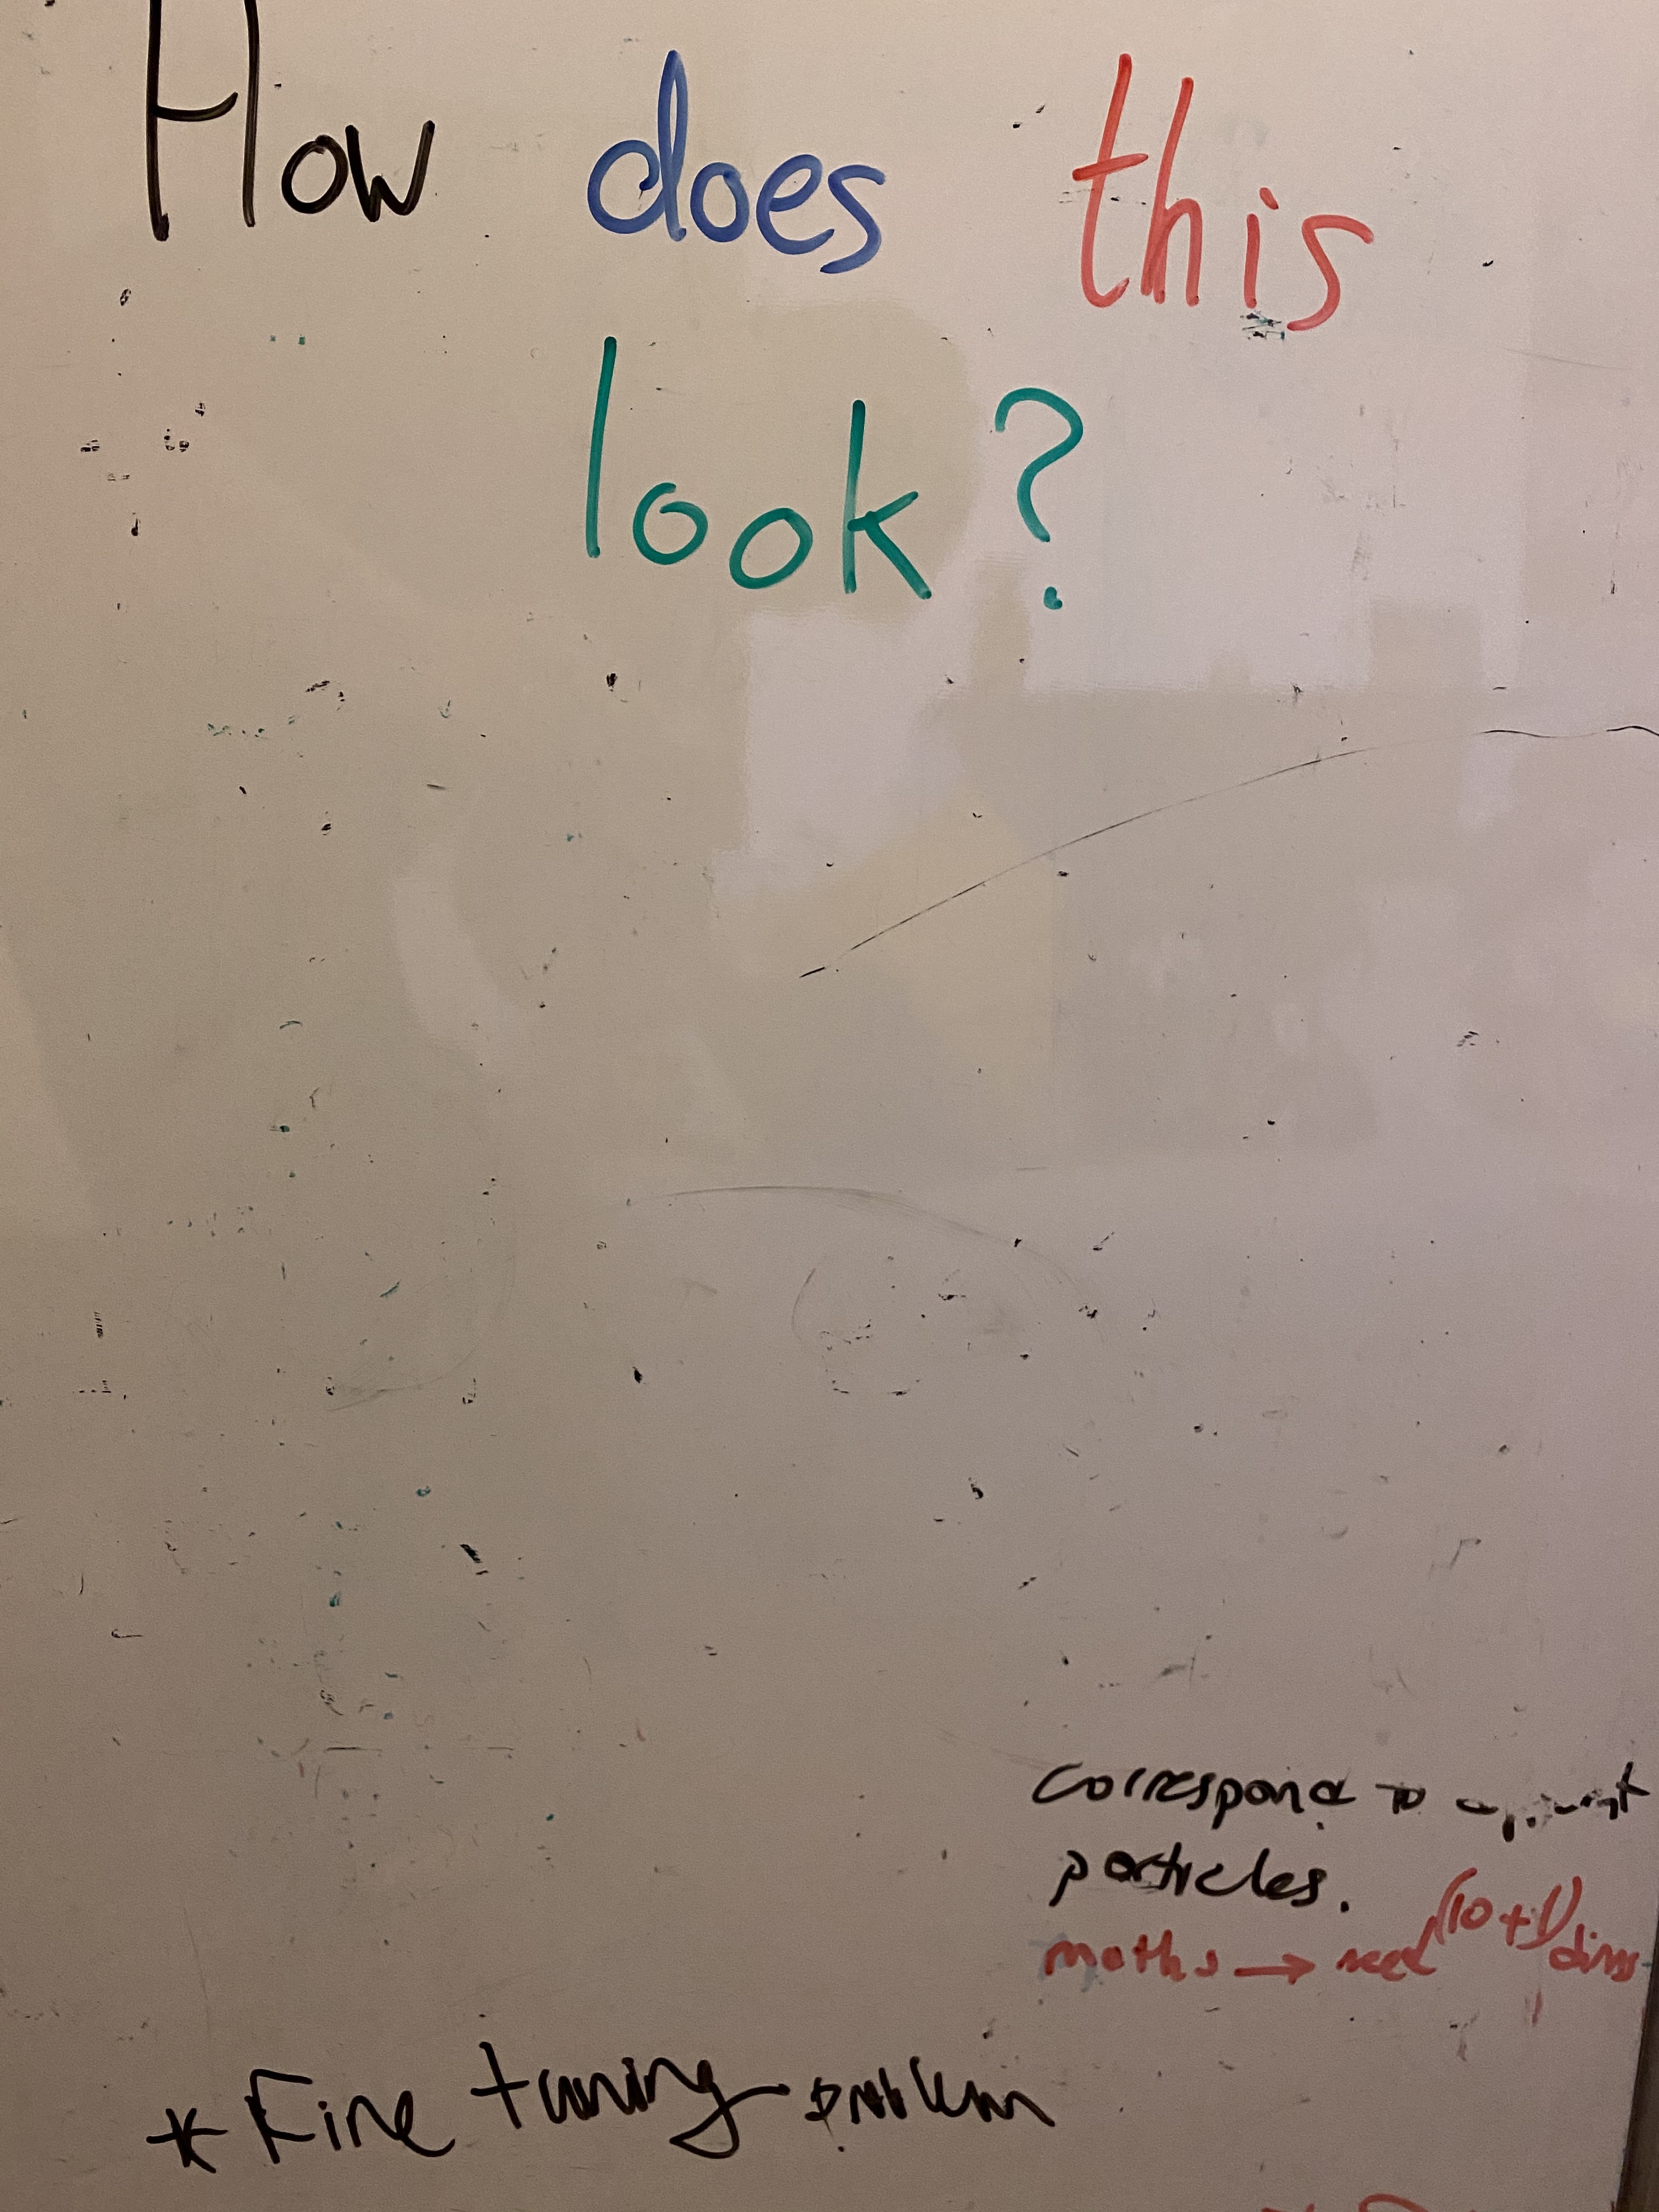 How does this
look?
correspond to
particles.
maths → need (10+1) dims
* Fine tuning problem